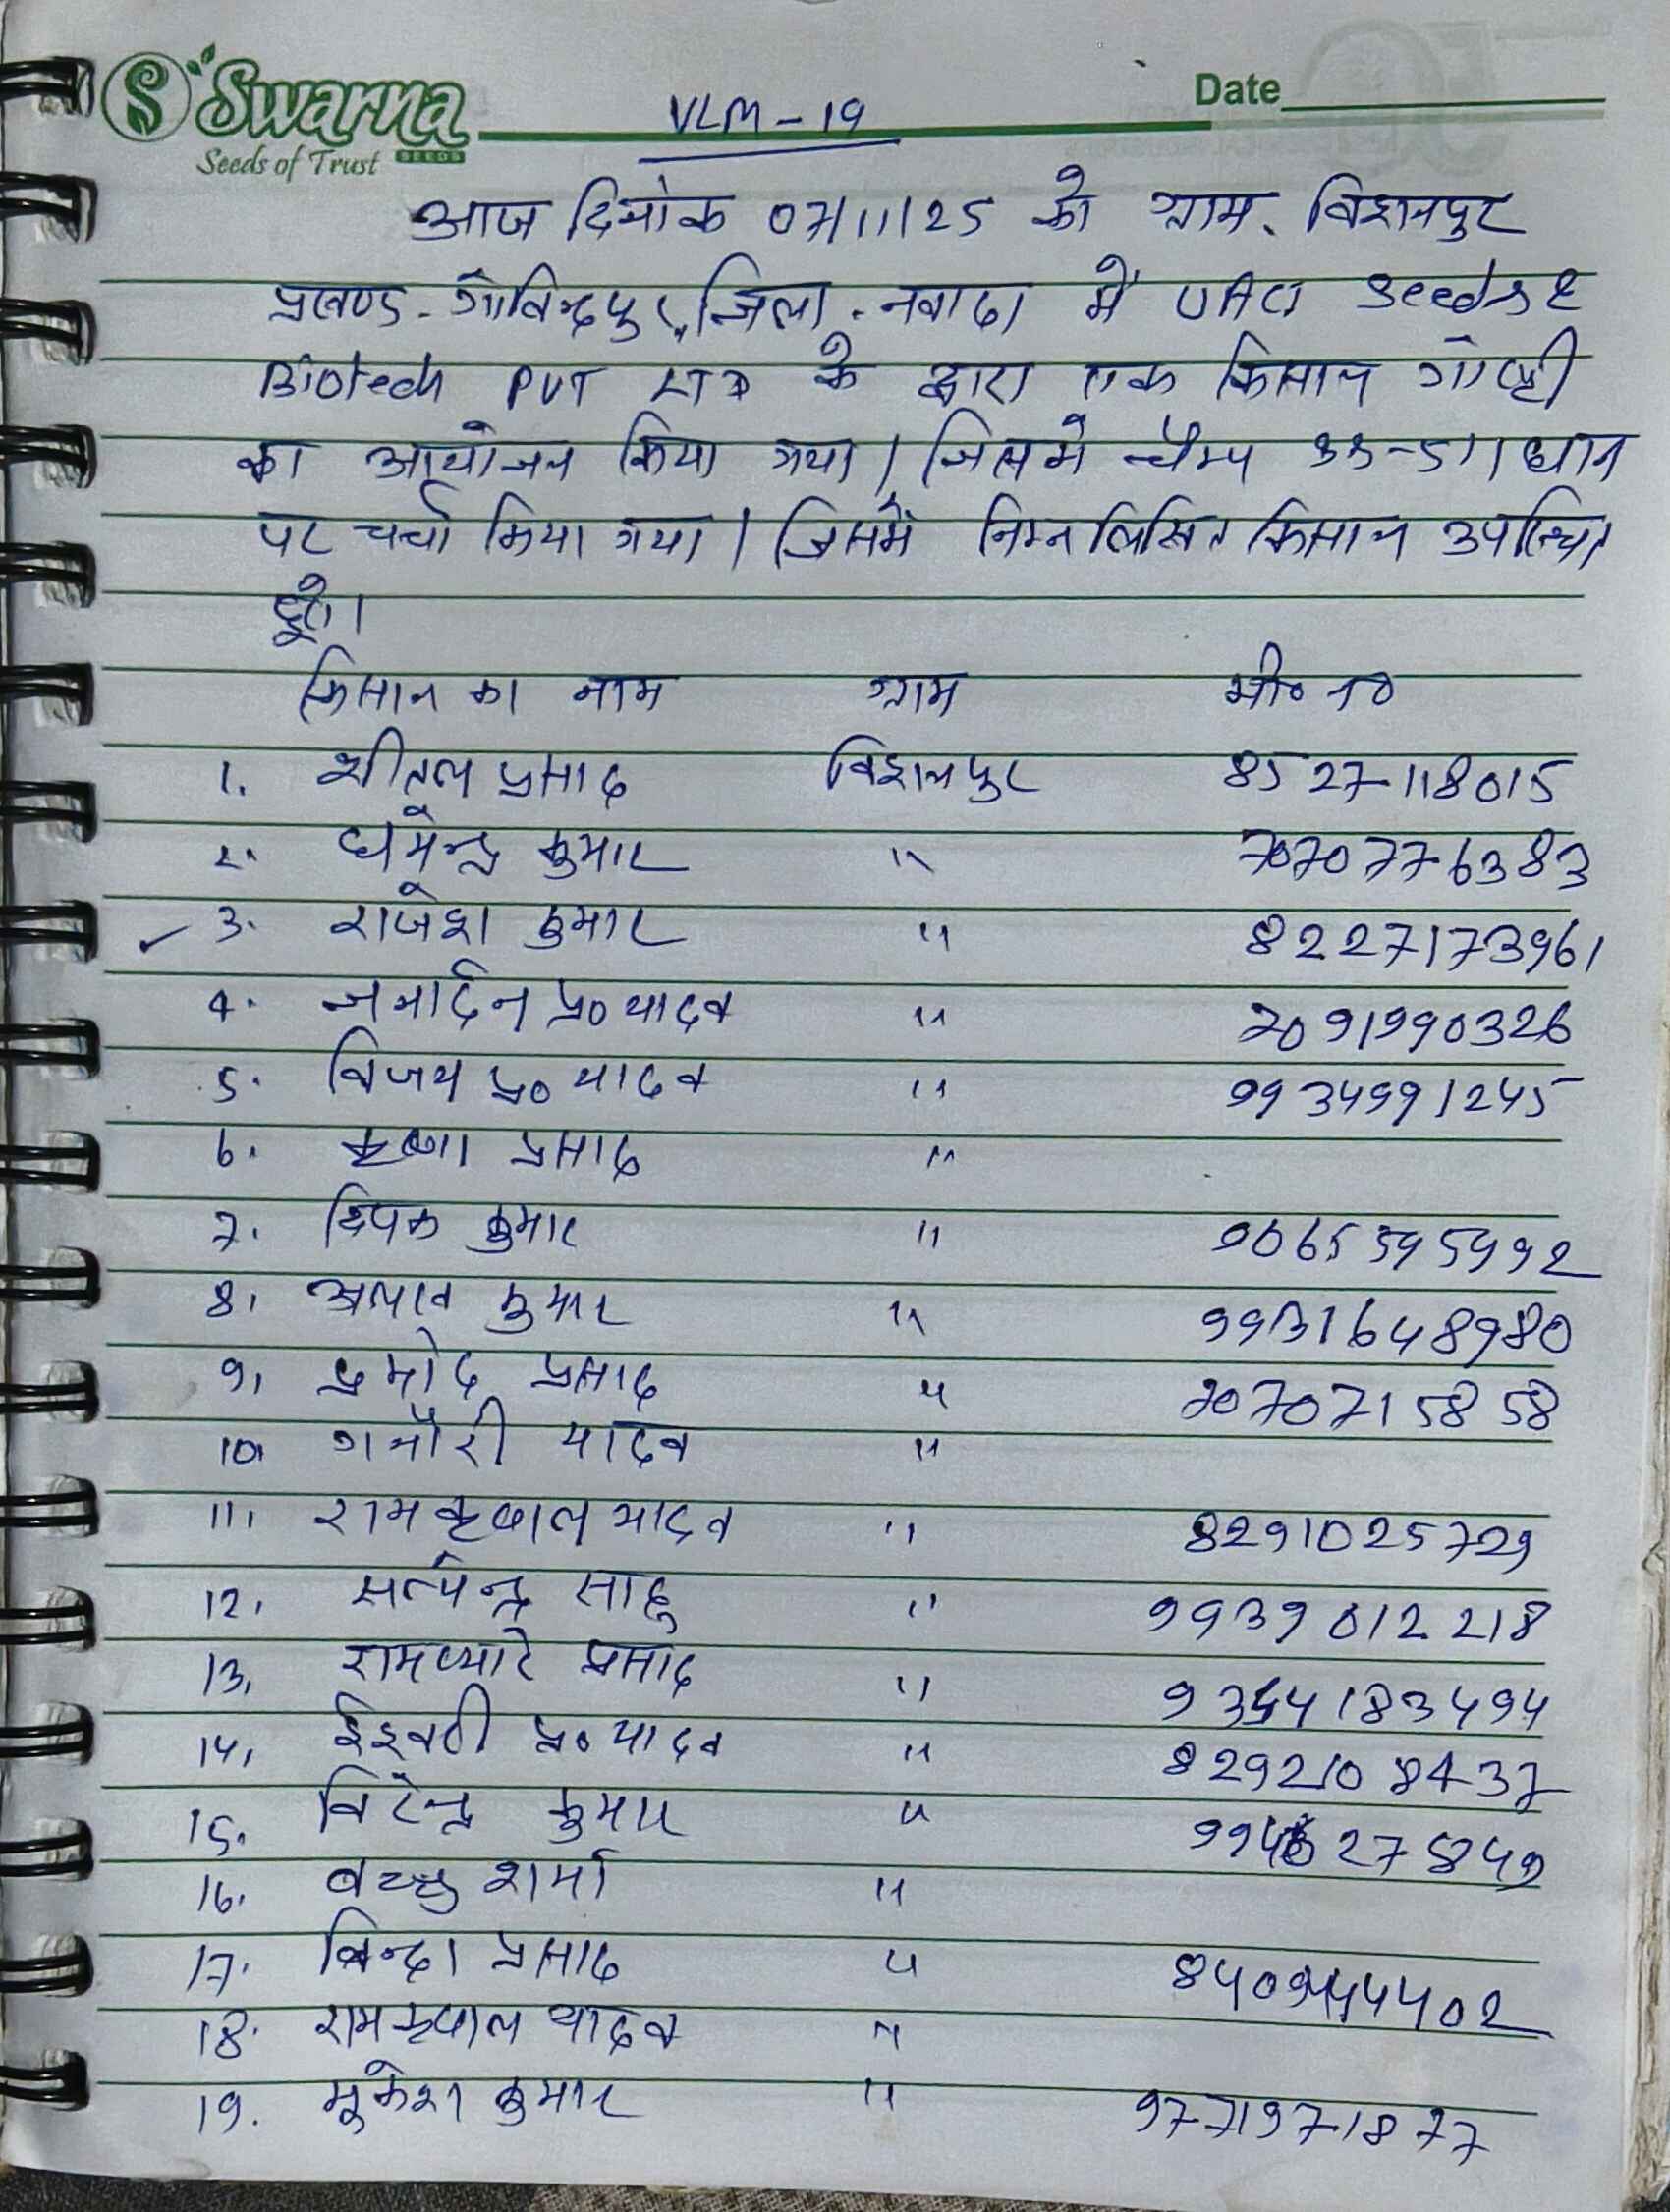 Swarna
SEEDS
Seeds of Trust
Date
VLM - 19
आज दिनांक 07/11/25 को ग्राम. बिशनपुर
प्रखण्ड - गोविन्दपुर, जिला. नवादा में Seeds &
Biotech PVT LTD के द्वारा एक किसान गोष्ठी
का आयोजन किया गया। जिसमे चैम्प 33-511 धान
पर चर्चा किया गया। जिसमें निम्नलिखित किसान उपस्थित
हुए।
किसान का नाम ग्राम मो० न०
1. शीतल प्रसाद बिशनपुर 8527118015
2. धर्मेन्द्र कुमार " 7070776383
3. राजेश कुमार " 8227173961
4. जनार्दन प्र० यादव " 7091990326
5. विजय प्र० यादव " 9934991245
6. कृष्णा प्रसाद "
7. दिपक कुमार " 9065595992
8. कुमार " 9931648980
9. प्रमोद प्रसाद " 7070715858
10. गनौरी यादव "
11. रामकृपाल यादव " 8291025729
12. सत्येन्द्र साहु " 9939012218
13. रामप्यारे प्रसाद "
14. ईश्वरी प्र० यादव " 8292108437
15. विरेन्द्र कुमार "
16. बच्चु शर्मा "
17. बिन्दा प्रसाद "
18. रामकृपाल यादव "
19. मुकेश कुमार " 9771971877